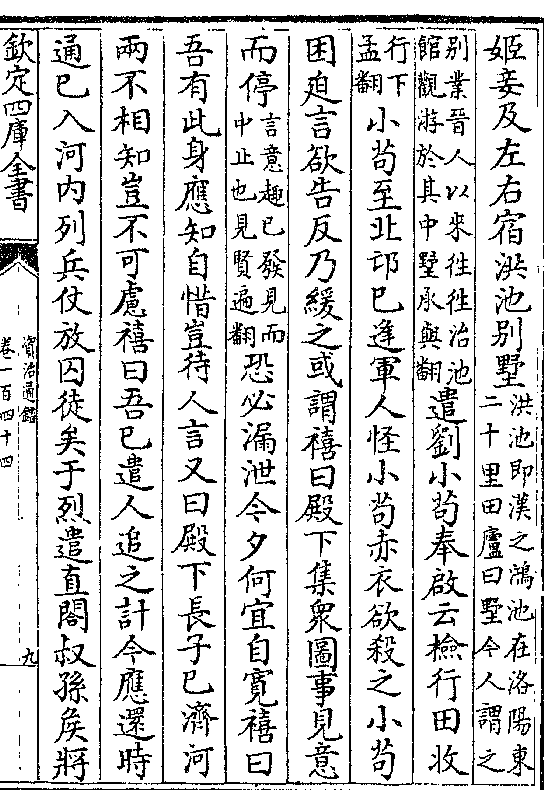 姬妾及左右宿洪池别墅洪池即漢之鴻池在洛陽東二十里田廬曰墅今人謂之
别業晉人以來往往治池館觀游於其中墅承與翻遣劉小苟奉啟云檢行田收
行下孟翻小苟至北邙已逢軍人怪小苟赤衣欲殺之小苟
困迫言欲告反乃緩之或謂禧曰殿下集衆圖事見意
而停言意趣已發見而中止也見賢遍翻恐必漏泄今夕何宜自寛禧曰
吾有此身應知自惜豈待人言又曰殿下長子已濟河
兩不相知豈不可慮禧曰吾已遣人追之計今應還時
通已入河内列兵仗放囚徒矣于烈遣直閤叔孫侯將
欽定四庫全書
資治通鑑
卷一百四十四
九